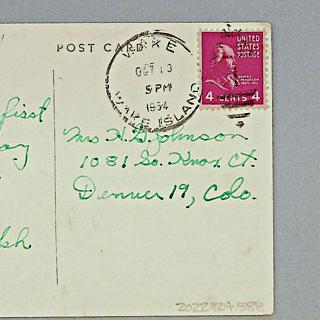 POST CARD
WAKE
OCT 13
5 PM
1954
WAKE ISLAND
UNITED
STATES
POSTAGE
JAMES
MADISON
4 CENTS 4
first
ay
sh
Mrs H. G. Johnson
1081 So. Knox Ct.
Denver 19, Colo.
2022.124.588